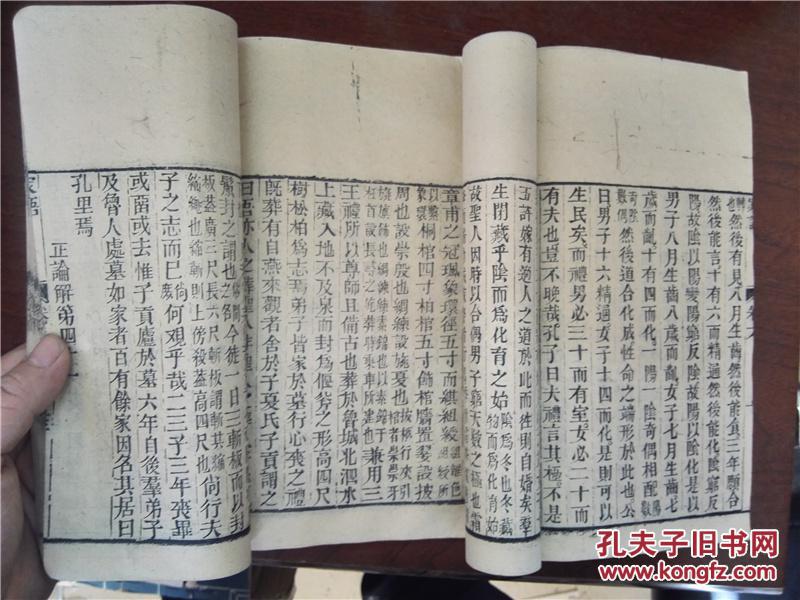 然後有見八月生齒然後能食三年顋合
然後能言十有六而精通然後能化陰窮反
陽故陰以陽變陽窮反陰故陽以陰化是以
男子八月生齒八歲而齔女子七月生齒七
歲而齔十有四而化一陽一陰奇偶相配
然後道合化成性命之端形於此也公
曰男子十六精通女子十四而化是則可以
生民矣而禮男必三十而有室女必二十而
有夫也豈不晚哉孔子曰夫禮言其極不是
許嫁有適人之道於此而往則自婚矣羣
生閉藏乎陰而為化育之始
故聖人因時以合偶男子窮天數之極也霜
章甫之冠珮象環徑五寸而綦組綬
桐棺四寸柏棺五寸飾棺牆置翣設披
周也設崇殷也綢練設旐夏也
兼用三
王禮所以尊師且備古也葬於魯城北泗水
上藏入地不及泉而封為偃斧之形高四尺
樹松柏為志焉弟子皆家於墓行心喪之禮
既葬有自燕來觀者舍於子夏氏子貢謂之
封之謂也今徒一日三斬板而以封
板蓋廣二尺長六尺
尚行夫
子之志而已何觀乎哉二三子三年喪畢
或留或去惟子貢廬於墓六年自後羣弟子
及魯人處墓如家者百有餘家因名其居曰
孔里焉
正論解第四十一
家語
孔夫子旧书网
www.kongfz.com